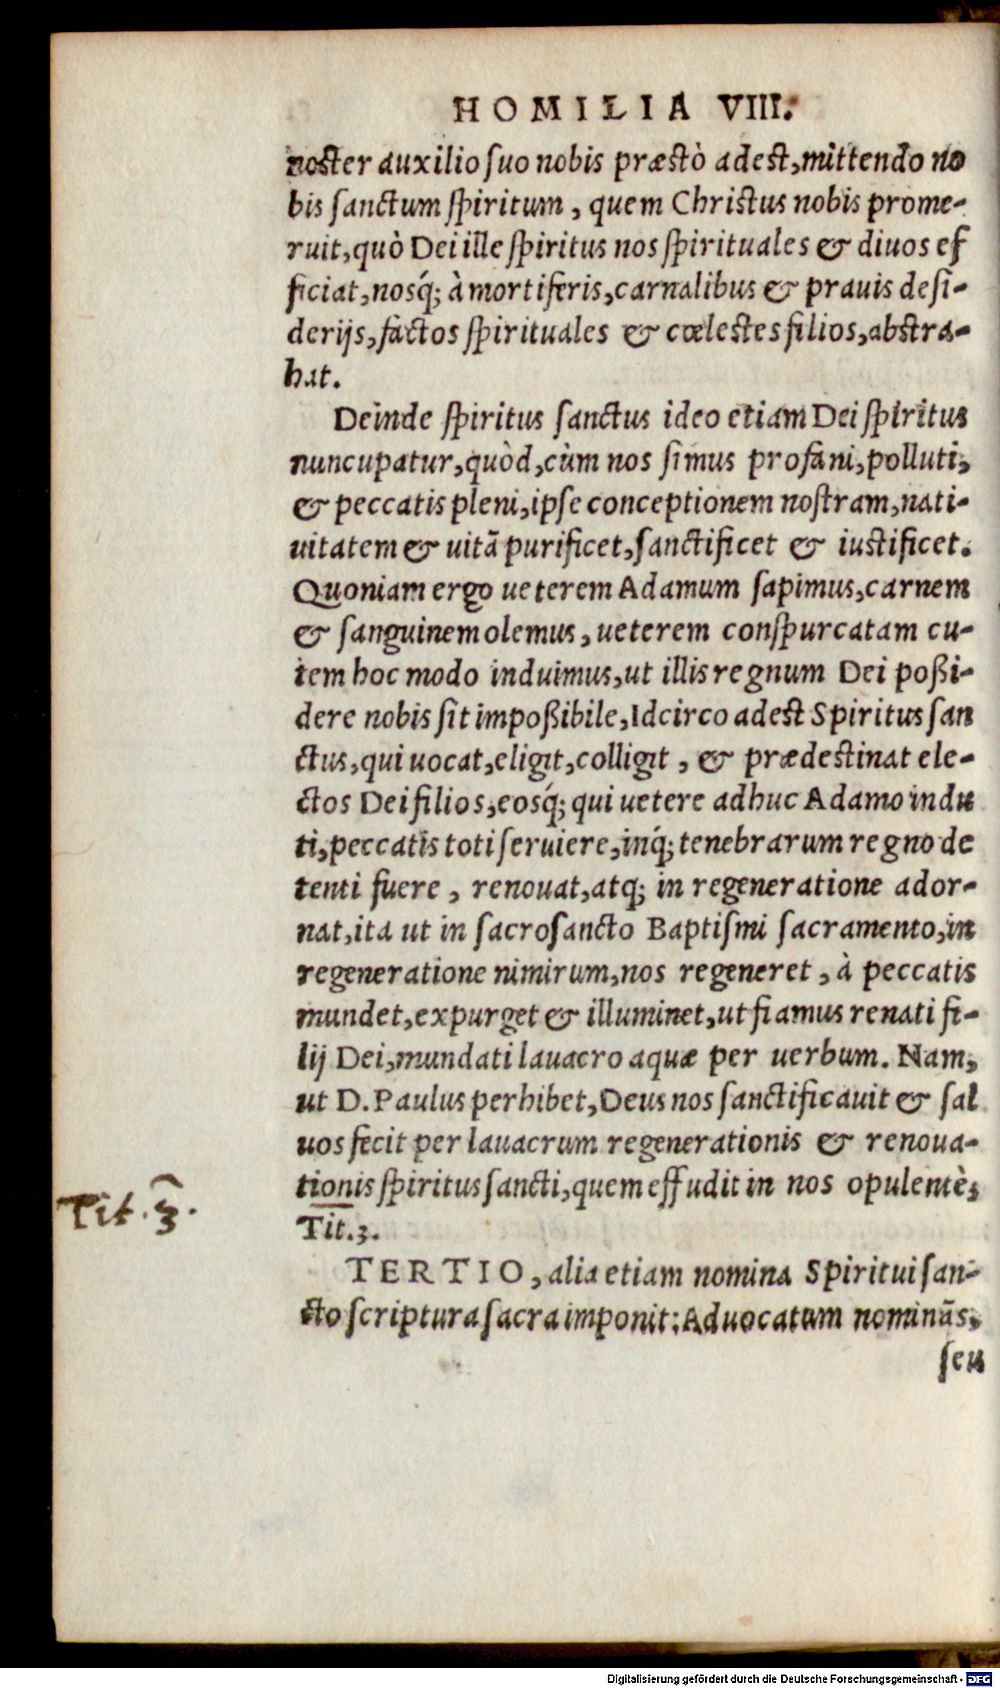 HOMILIA VIII.
noster auxilio suo nobis præstò adest, mittendo no
bis sanctum spiritum, quem Christus nobis prome-
ruit, quò Dei ille spiritus nos spirituales & diuos ef
ficiat, nosq́; à mortiferis, carnalibus & prauis desi-
derijs, factos spirituales & cœlestes filios, abstra-
hat.
Deinde spiritus sanctus ideo etiam Dei spiritus
nuncupatur, quòd, cùm nos simus profani, polluti,
& peccatis pleni, ipse conceptionem nostram, nati-
uitatem & uitā purificet, sanctificet & iustificet.
Quoniam ergo ueterem Adamum sapimus, carnem
& sanguinem olemus, ueterem conspurcatam cu-
tem hoc modo induimus, ut illis regnum Dei poßi-
dere nobis sit impoßibile, Idcirco adest Spiritus san
ctus, qui uocat, eligit, colligit, & prædestinat ele-
ctos Dei filios, eosq́; qui uetere adhuc Adamo indu
ti, peccatis toti seruiere, inq́; tenebrarum regno de
tenti fuere, renouat, atq; in regeneratione ador-
nat, ita ut in sacrosancto Baptismi sacramento, in
regeneratione nimirum, nos regeneret, à peccatis
mundet, expurget & illuminet, ut fiamus renati fi-
lij Dei, mundati lauacro aquæ per uerbum. Nam,
ut D. Paulus perhibet, Deus nos sanctificauit & sal
uos fecit per lauacrum regenerationis & renoua-
tionis spiritus sancti, quem effudit in nos opulentè,
Tit. 3.
Tit. 3.
TERTIO, alia etiam nomina Spiritui san-
cto scriptura sacra imponit: Aduocatum nominās,
seu
Digitalisierung gefördert durch die Deutsche Forschungsgemeinschaft - DFG